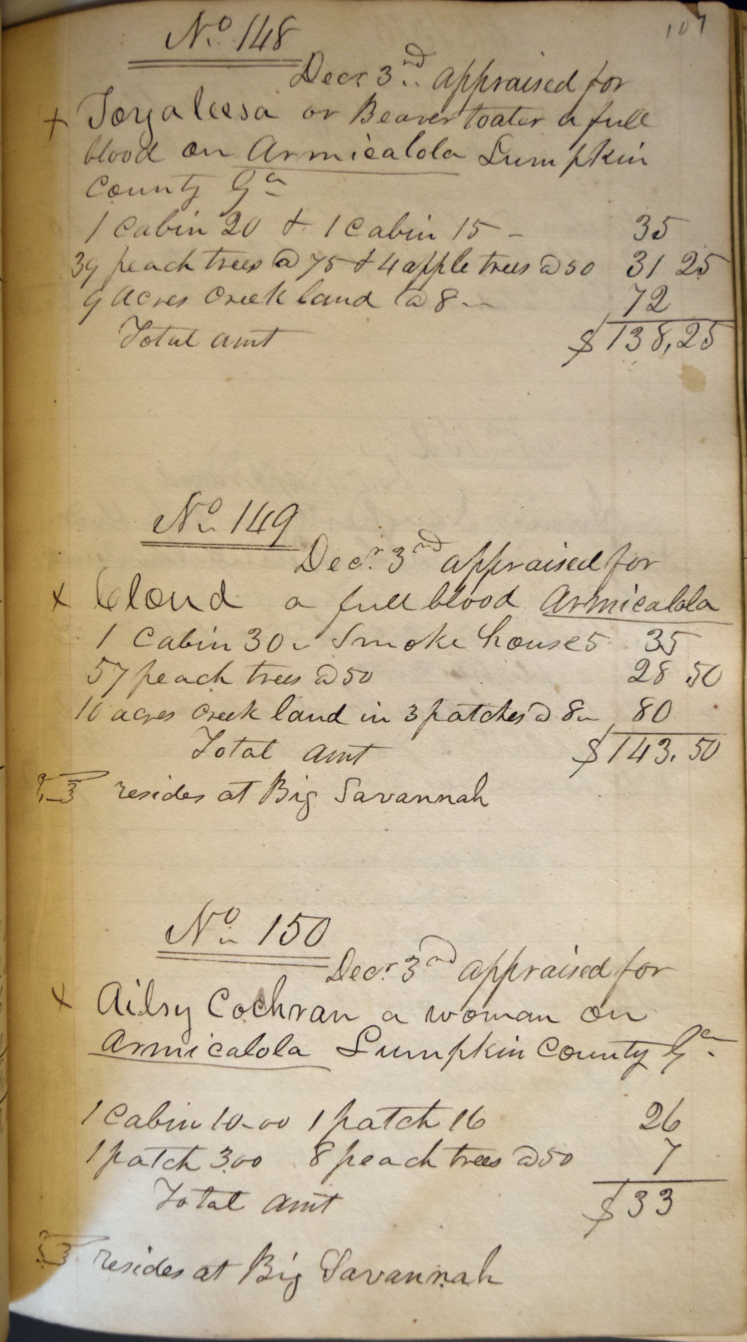 107
No 148
Decr 3rd appraised for
+ Toryaleesa or Beaver toater a full
blood on Armicalola Lumpkin
County Ga
1 Cabin 20 & 1 Cabin 15 - 35
39 peach trees @ 75 & 4 apple trees @ 50 31 25
9 acres Creek land @ 8 - 72
Total amt $138,25
No 149
Decr 3rd appraised for
x Cloud a full blood Armicalola
1 Cabin 30 Smoke house 5 35
57 peach trees @ 50 28 50
10 acres creek land in 3 patches @ 8 80
Total amt $143.50
resides at Big Savannah
No 150
Decr 3rd appraised for
x Ailsy Cochran a woman on
Armicalola Lumpkin County Ga.
1 Cabin 10-00 1 patch 16 26
1 patch 3.00 8 peach trees @ 50 7
Total amt $33
resides at Big Savannah